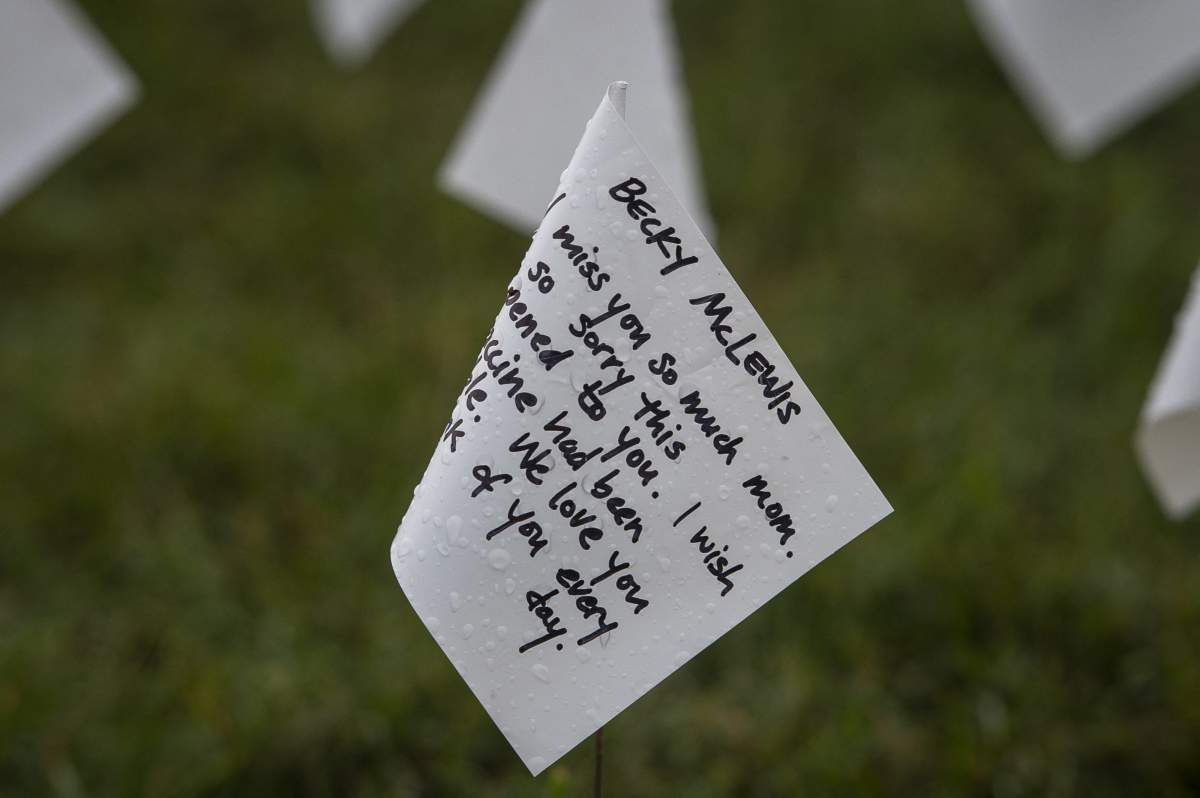 BECKY McLEWIS
I miss you so much mom.
so sorry this
pened to you. I wish
ccine had been
le. We love you
k of you every
day.